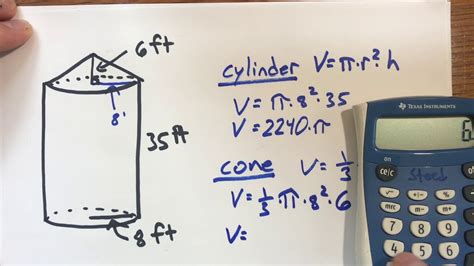 6 ft
8'
35 ft
8 ft
cylinder V=π·r²·h
V=π·8²·35
V=2240·π
cone V=1/3·
V=1/3·π·8²·6
V=
TEXAS INSTRUMENTS
6
on
CE/C
Steel
7 8 9
4 5 6
1 2